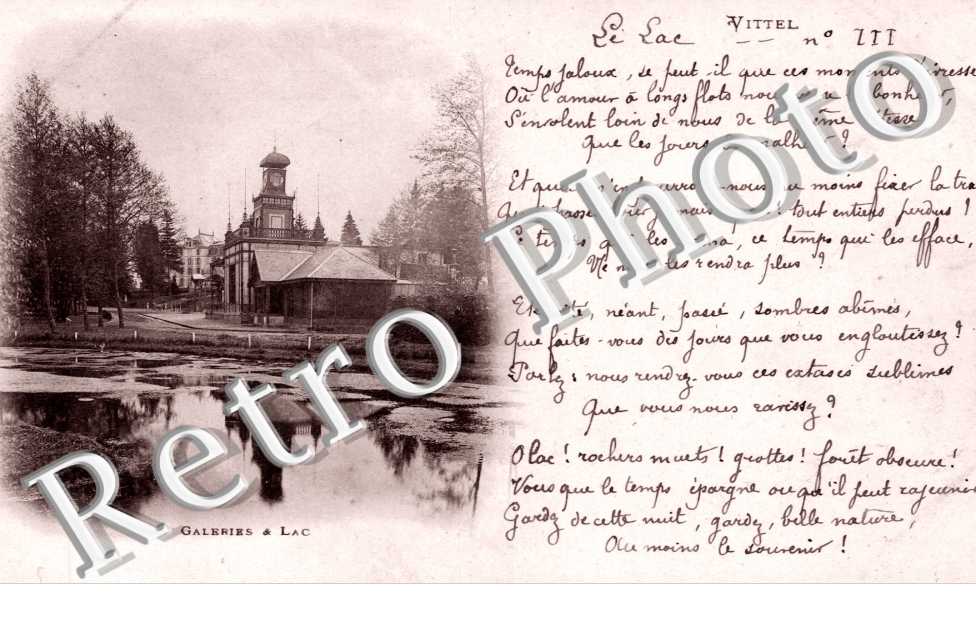 VITTEL
Le Lac n° III
Temps jaloux, se peut-il que ces moments d'ivresse
Où l'amour à longs flots nous bonheur,
S'envolent loin de nous de la même vitesse
Que les jours malheur ?
Et quoi, n'en pourrons-nous au moins fixer la tra
passés jamais ! tout entiers perdus !
Ce temps qui les donna, ce temps qui les efface,
Ne nous les rendra plus ?
Eternité, néant, passé, sombres abîmes,
Que faites-vous des jours que vous engloutissez ?
Parlez : nous rendrez-vous ces extases sublimes
Que vous nous ravissez ?
O lac ! rochers muets ! grottes ! forêt obscure !
Vous que le temps épargne ou qu'il peut rajeunir
Gardez de cette nuit, gardez, belle nature,
Au moins le souvenir !
GALERIES & LAC
Retro Photo